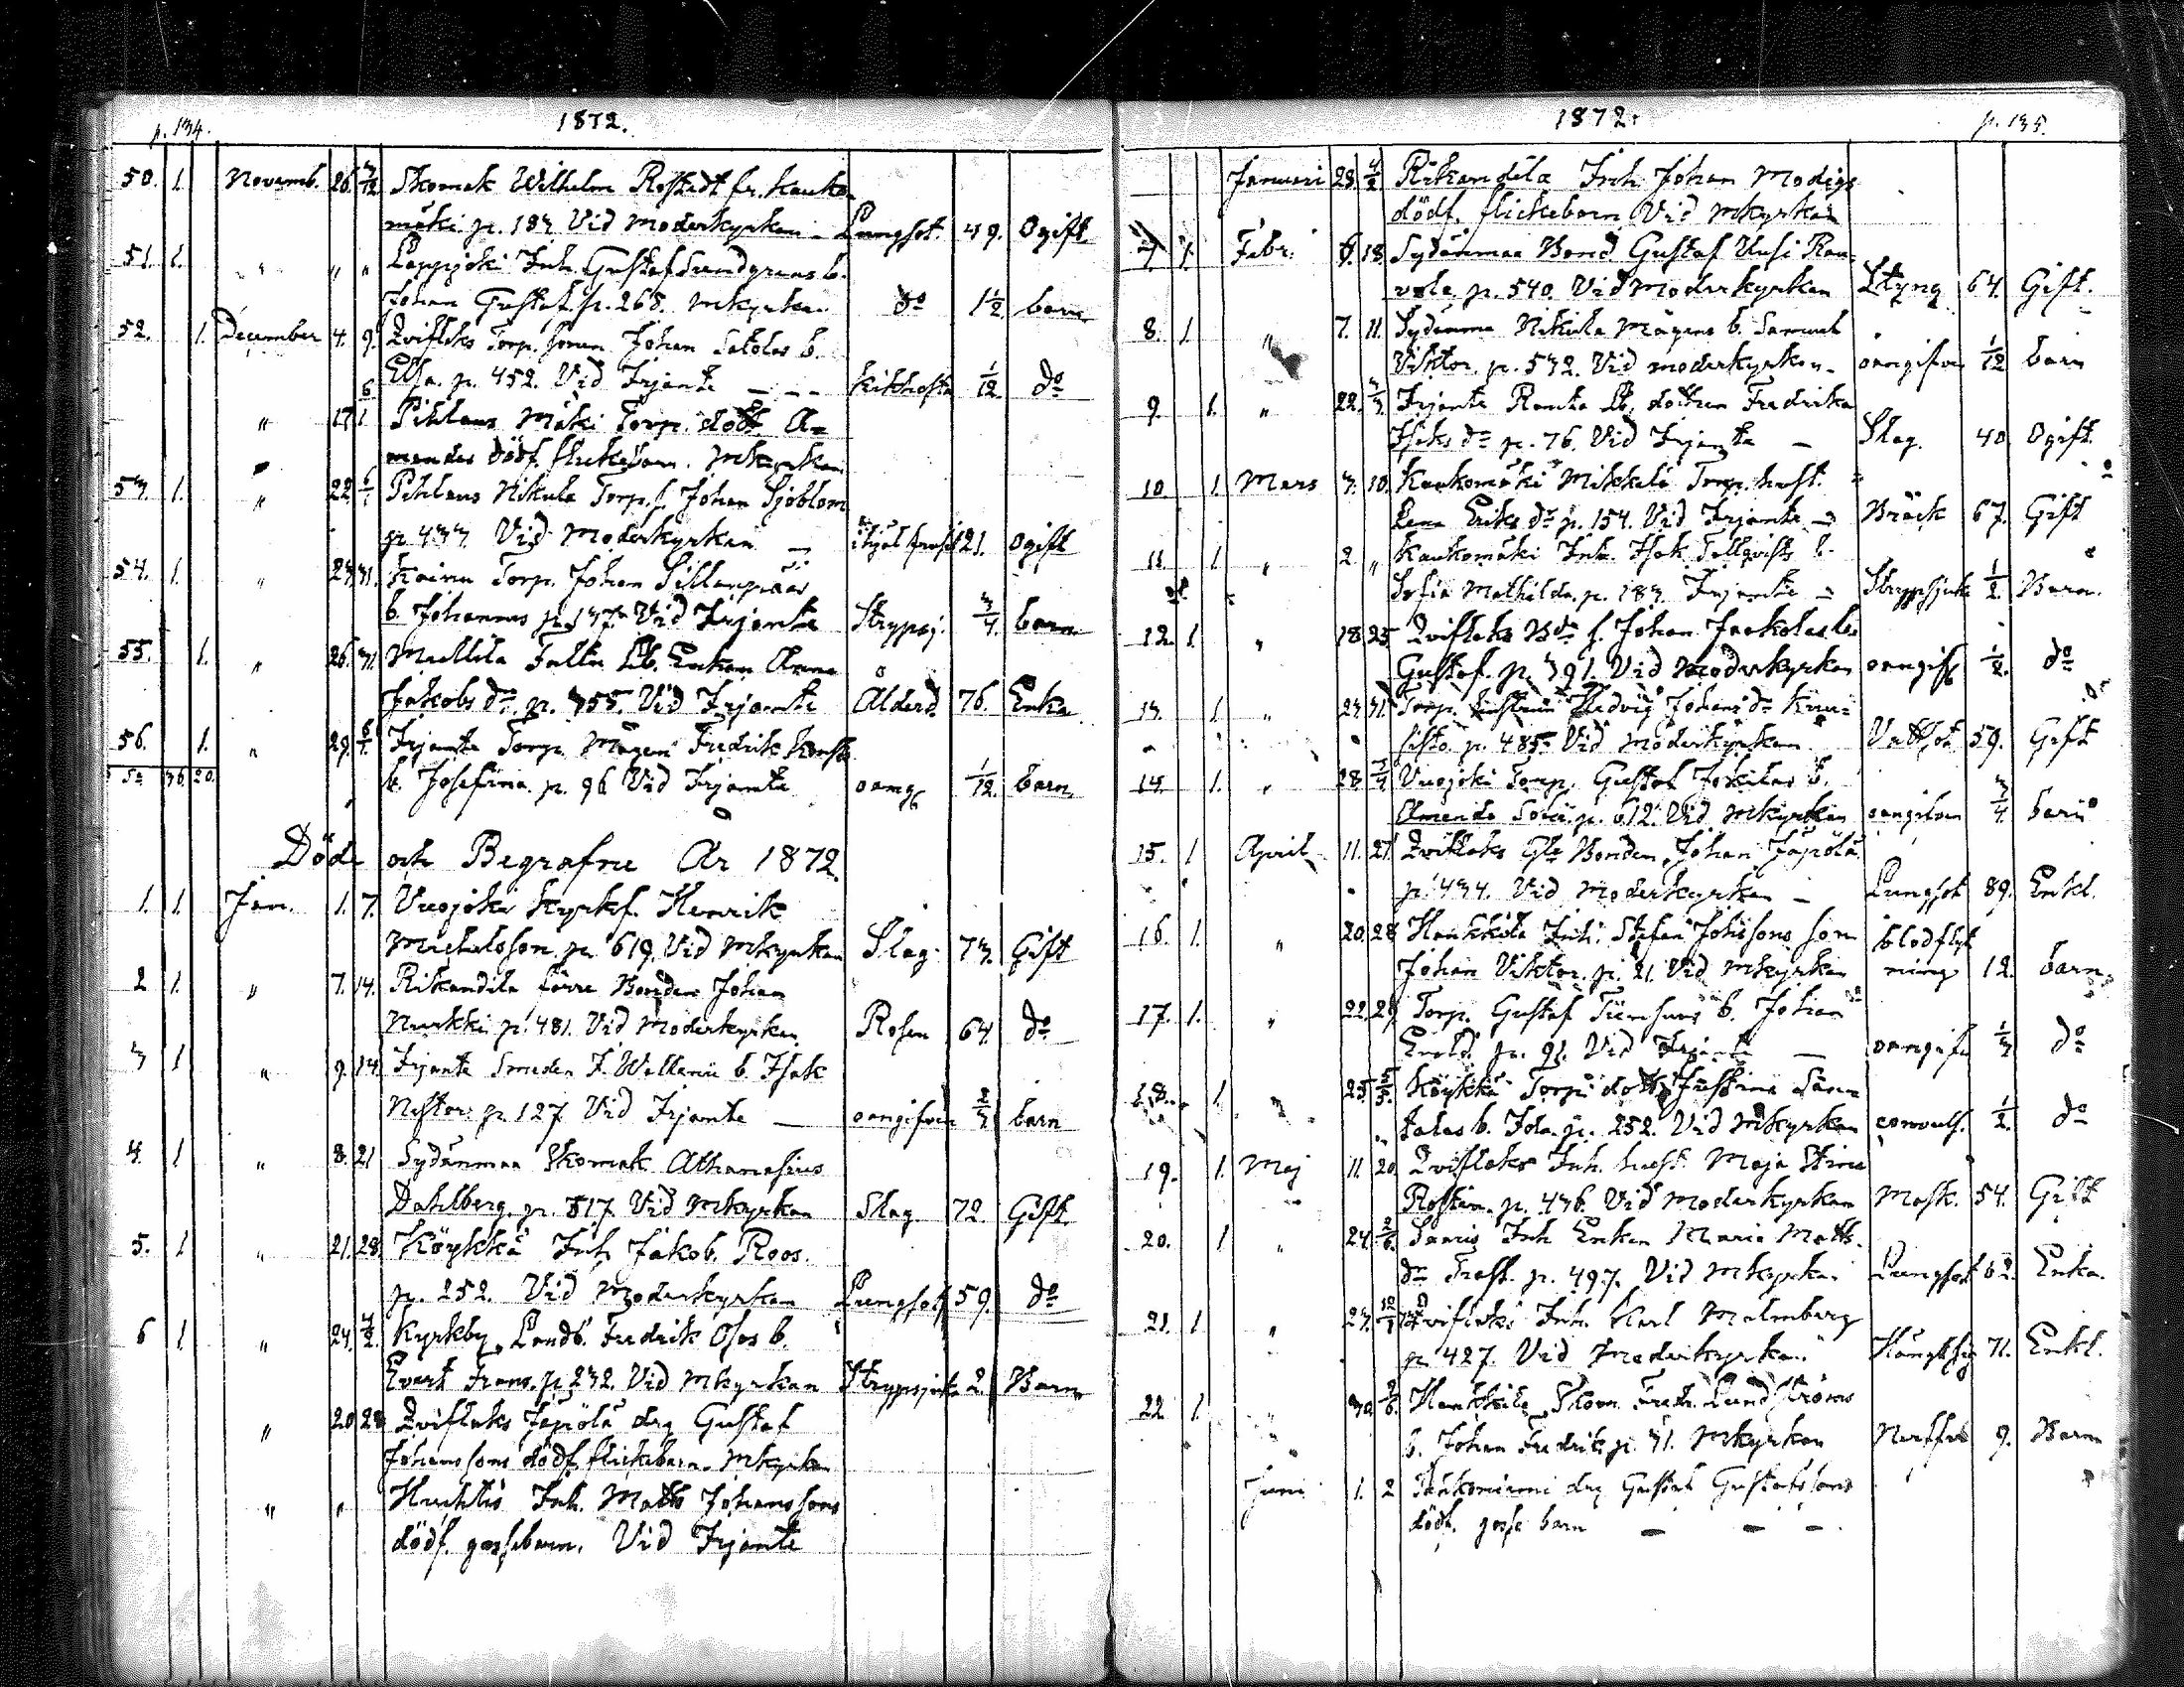 p. 134.
1872.
50. 1. Novemb. 26. 3/12 Skomak Wilhelm Rostedt fr. Kauko
mäki p. 183 Vid Moderkyrkan - Lungsot. 49. Ogift
51. 1. " " " Lappijoki Inh. Gustaf Sundgrens b.
Johan Gustaf p. 268. Mkyrkan do 1 1/2 barn
52. 1. December 4. 9. Qviflaks Torp. sonen Johan Satolas b.
Elsa. p. 452. Vid Irjante - - - Kikhosta 1/12. do
" 17. Pihlaus Mäki Torp. dott A-
mandas dödf. flickebarn. Mkyrkan
53. 1. " 22 Pihlaus Nikula Torp. s. Johan Sjöblom
p. 433 Vid Moderkyrkan - ihjäl 21. Ogift
54. 1. " 23 31. Kainu Torp. Johan Sillanpääs
b. Johannes p. 137. Vid Irjante Strypsj. 3/4. barn
55. 1. " 26. 31. Mullila Lb. Enkan Anna
Jakobs dr. p. 355. Vid Irjante Ålderd. 76. Enka
56. 1. " 29. 6/1. Irjante Torp. Mågen Fredrik
b. Josefina p. 96 Vid Irjante oangf 1/12. barn
Sa 36. 20.
Döde och Begrafne År 1872.
1. 1. Jan. 1. 7. Vuojoki Kyrkf. Henrik
Michelsson p. 619. Vid Mkyrkan Slag 73. Gift
2 1. " 7. 14. Rikandila förre Bonden Johan
Nurkki p. 481. Vid Moderkyrkan Rosen 64. do
3 1 " 9. 14. Irjante Smeden F. Wallenii b. Isak
Nestor p. 127. Vid Irjante - oangifven 2/3 barn
4. 1 " 8. 21 Sydänmaa Skomak Athanasius
Dahlberg. p. 517. Vid Mkyrkan Slag. 72. Gift.
5. 1 " 21. 28. Köykkä Inh. Jakob Roos.
p. 252. Vid Moderkyrkan Lungsot 59. do
6 1. " 24. 4/2. Kyrkby Landb. Fredrik Osas b.
Evert Frans. p. 232. Vid Mkyrkan Strypsjuka 2. Barn
" 20 28 Qviflaks Jäpölä drg Gustaf
Johanssons dödf. flickebarn. Mkyrkan
" " Huhtis Inh. Matts Johanssons
dödf. gossebarn. Vid Irjante
1872.
p. 135.
Januari 28. 4/2 Rikandila Inh. Johan Modigs
dödf. flickebarn Vid Mkyrkan
7. 1. Febr. 18. Sydänmaa Bond Gustaf Uusi Rau
vola p. 540. Vid Moderkyrkan Styng 64. Gift.
8. 1. " 7. 11. Sydänmaa Nikula Mågens b. Samuel
Viktor. p. 532. Vid moderkyrkan - oangifven 1/12 barn
9. 1. " 22. 3/3 Irjante Ranta Lb. dottren Fredrika
Isaks dr p. 76. Vid Irjante - Slag. 40 Ogift.
10. 1. Mars 3. 10. Kaukomäki Mikkola Torp. hust.
Lena Eriks dr p. 154. Vid Irjante - Bråck 67. Gift
11. 1. " 2 " Kaukomäki Inh. Isak Tallqvists b.
Sofia Mathilda. p. 183. Irjante - Strypsjuka 1/2. Barn.
12. 1. " 18. 25 Qviflaks Bde s. Johan Jaakolas b.
Gustaf. p. 391. Vid Moderkyrkan oangif 1/2. do
13. 1. " 23. 31. Torp. Hedvig Johans dr
p. 485. Vid Moderkyrkan. Vattsot 59. Gift
14. 1. " 28. Vuojoki Torp. Gustaf Jokilas b.
Amanda Sofia. p. 612. Vid Mkyrkan oangifven 3/4. barn
15. 1 April 11. 21. Qviflaks Gle Bonden Johan Jäpölä
p. 434. Vid Moderkyrkan - Lungsot 89. Enkl.
16. 1. " 20. 28 Hankkila Inh. Stefan Johssons son
Johan Viktor. p. 21. Vid Mkyrkan blodflyt
ning 12. barn
17. 1. " 22. 29. Torp. Gustaf b. Johan
p. 91. Vid Irjante - oangifv 1/3 do
18. 1. " 25. 5/5. Köykkä Torp. dott. Justina
b. Ida p. 252. Vid Mkyrkan convuls. 1/2. do
19. 1. Maj 11. 20 Qviflaks Inh. hust. Maja Stina
p. 436. Vid Moderkyrkan Mask. 54. Gift
20. 1 " 24. 2/6. Inh. Enkan Maria Matts
dr p. 497. Vid Mkyrkan Lungsot 62. Enka.
21. 1. " 27. Qviflaks Inh. Karl Malmberg
p. 427. Vid Moderkyrkan Hängt sig 71. Enkl.
22 1. " 30. 2/6. Hankkila Skom. Fredr. Lundströms
b. Johan Fredrik p. 31. Mkyrkan 9. Barn
Juni 1. 2 drg Gustaf Gustafssons
dödf. gosse barn - - -